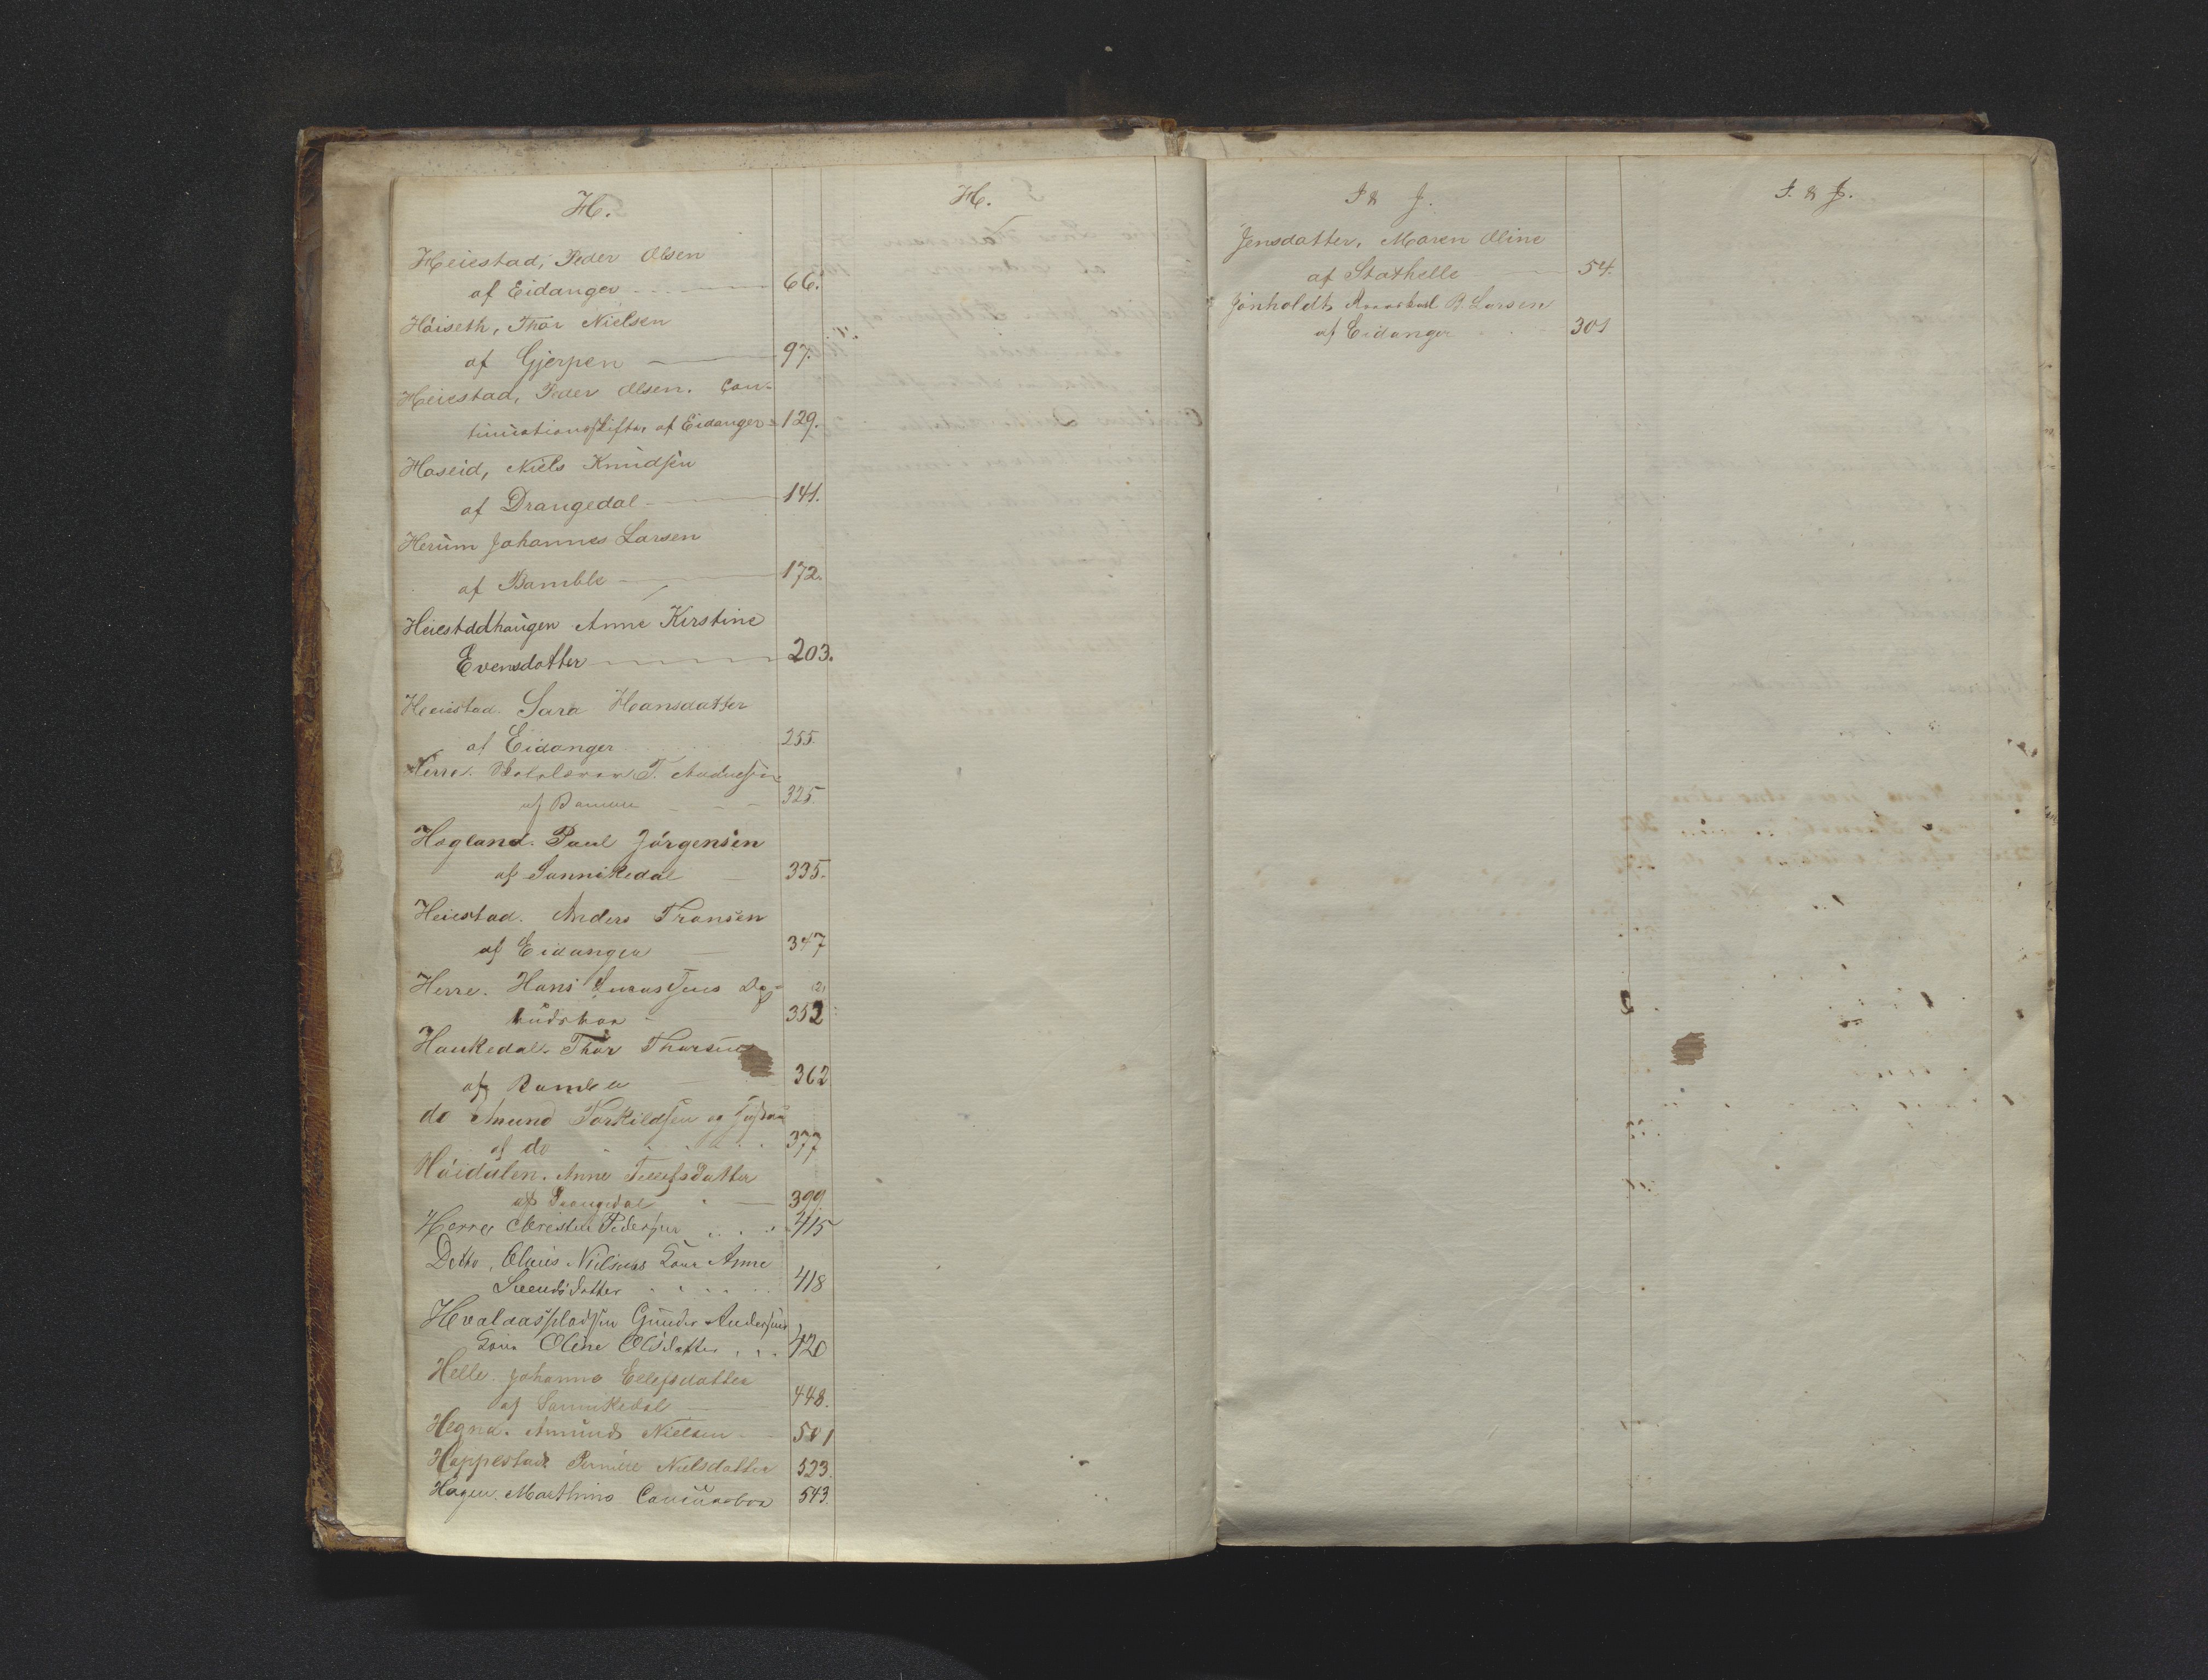 H.
Heiestad, Peder Olsen
af Eidanger 66.
Höiseth, Thor Nielsen
af Gjerpen 97.
Heiestad, Peder Olsen. Con-
tinuationsskifte, af Eidanger 129.
Haseid, Niels Knudsen
af Drangedal 141.
Herum Johannes Larsen
af Bamble 172.
Heiestadhaugen Anne Kirstine
Evensdatter 203.
Heiestad. Sara Hansdatter
af Eidanger 255.
Herre. T.
af 325.
Hogland. Paul Jörgensen
af Sannikedal 335.
Heiestad. Anders Fransen
af Eidanger 347
Herre. Hans (2)
352
Haukedal. Thor Thorsen
af Bamble 362
do Amund Torkildsen og
af do 377
Höidalen. Anne Tellefsdatter
af Drangedal 399.
Herre Christen Pedersen 415
Detto, Olaus Nielsens Kone Anne
Svendsdatter 418
Hvalaaspladsen Gunder Andersens
Kone Oline Olsdatter 420
Helle. Johanne Ellefsdatter
af Sannikedal 448.
Hegna. Amund Nielsen 501
Heppestad Pernille Nielsdatter 523.
Hagen. Marthine 543.
H.
I & J.
Jensdatter, Maren Oline
af Stathelle 54.
Jönholdt, B. Larsen
af Eidanger 301
I. & J.